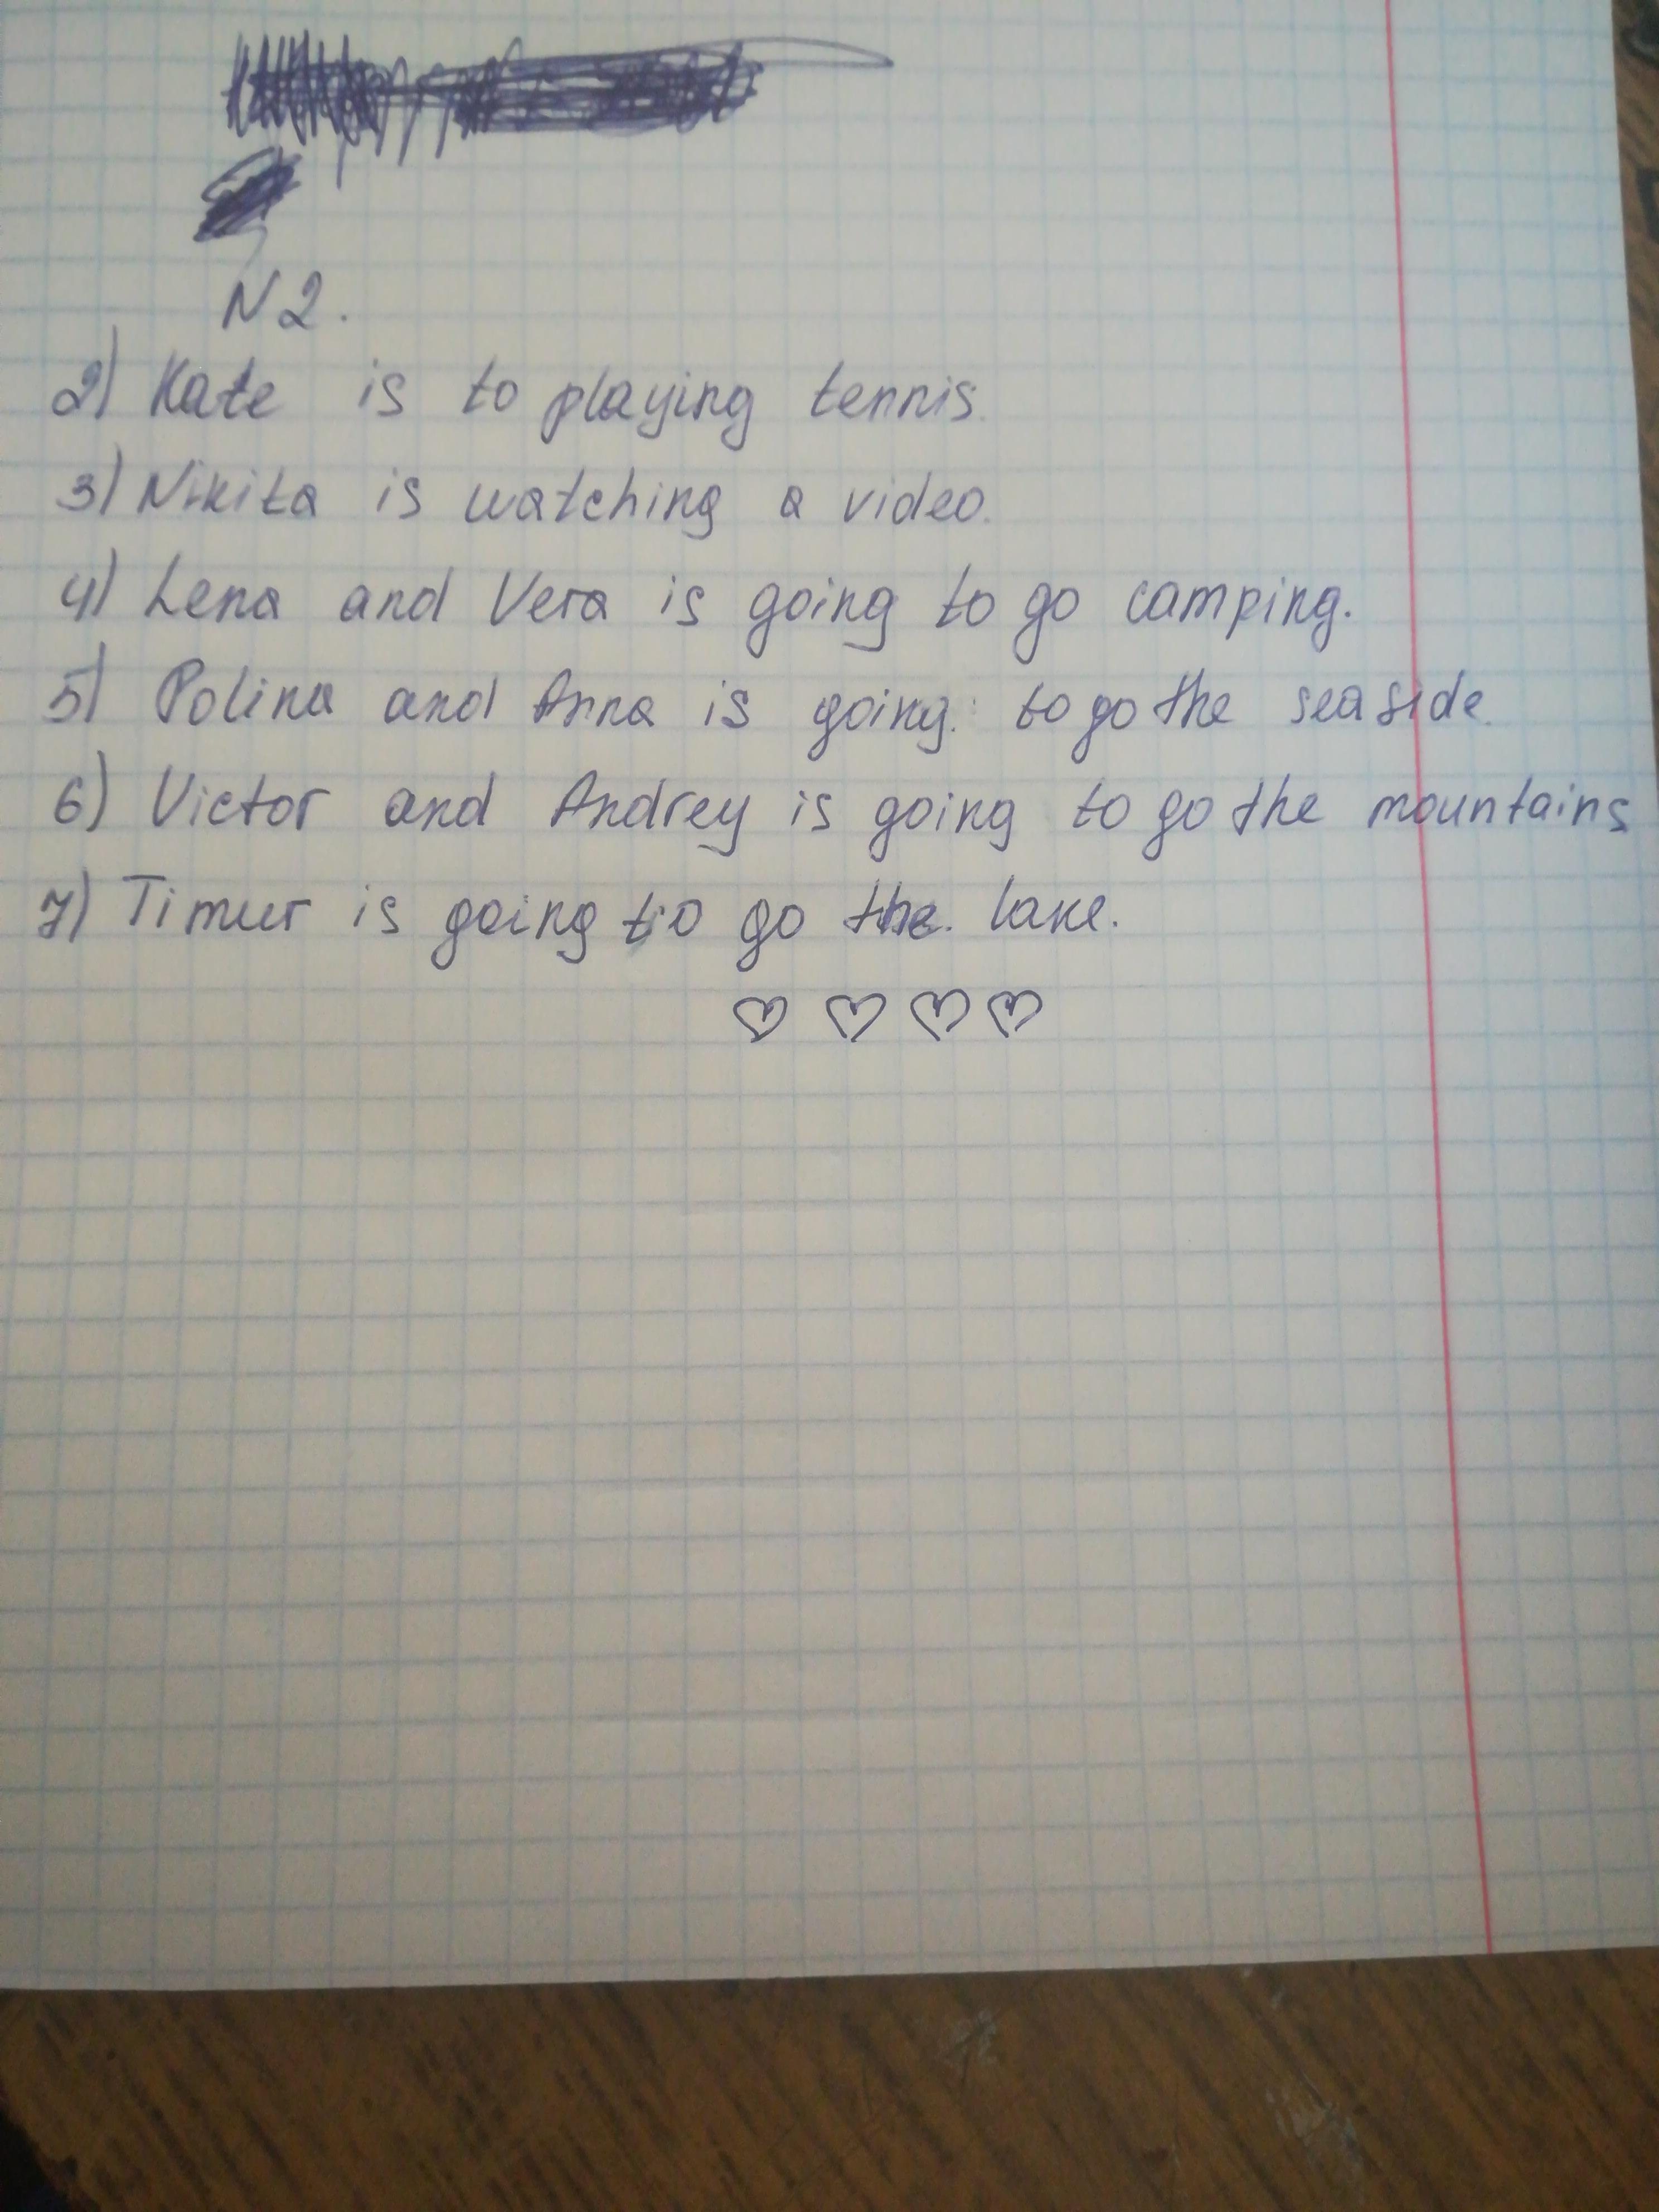 N2.
2) Kate is to playing tennis.
3) Nikita is watching a video.
4) Lena and Vera is going to go camping.
5) Polina and Anna is going to go the seaside.
6) Victor and Andrey is going to go the mountains
7) Timur is going to go the lake.